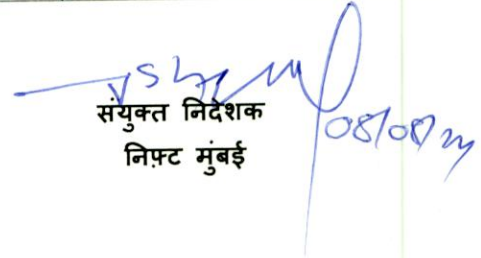 संयुक्त निदेशक
निफ़्ट मुंबई
08/08/24